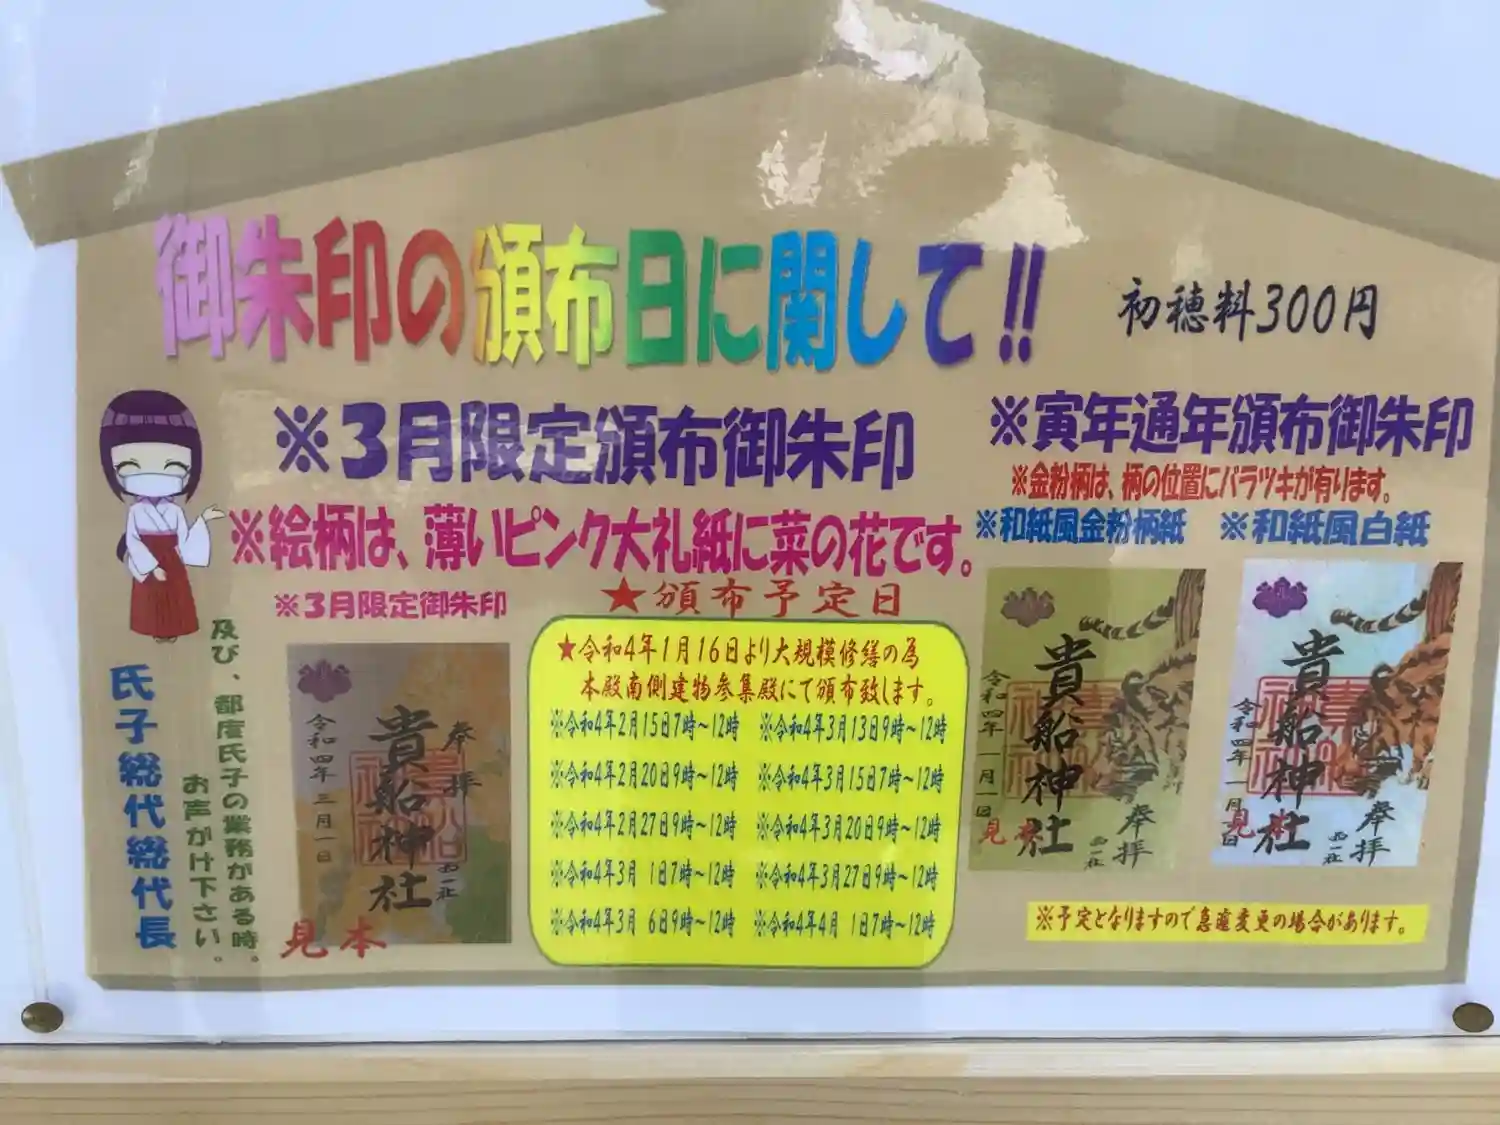 御朱印の頒布日に関して!!
初穂料300円
※3月限定頒布御朱印
※絵柄は、薄いピンク大礼紙に菜の花です。
※3月限定御朱印
奉拝
貴船神社
令和四年三月一日
見本
★頒布予定日
★令和4年1月16日より大規模修繕の為
本殿南側建物参集殿にて頒布致します。
※令和4年2月15日7時~12時
※令和4年2月20日9時~12時
※令和4年2月27日9時~12時
※令和4年3月 1日7時~12時
※令和4年3月 6日9時~12時
※令和4年3月13日9時~12時
※令和4年3月15日7時~12時
※令和4年3月20日9時~12時
※令和4年3月27日9時~12時
※令和4年4月 1日7時~12時
※寅年通年頒布御朱印
※金粉柄は、柄の位置にバラツキが有ります。
※和紙風金粉柄紙
※和紙風白紙
貴船神社
奉拝
令和四年一月一日
見本
貴船神社
奉拝
令和四年一月一日
見本
※予定となりますので急遽変更の場合があります。
及び、都度氏子の業務がある時。
お声がけ下さい。
氏子総代総代長